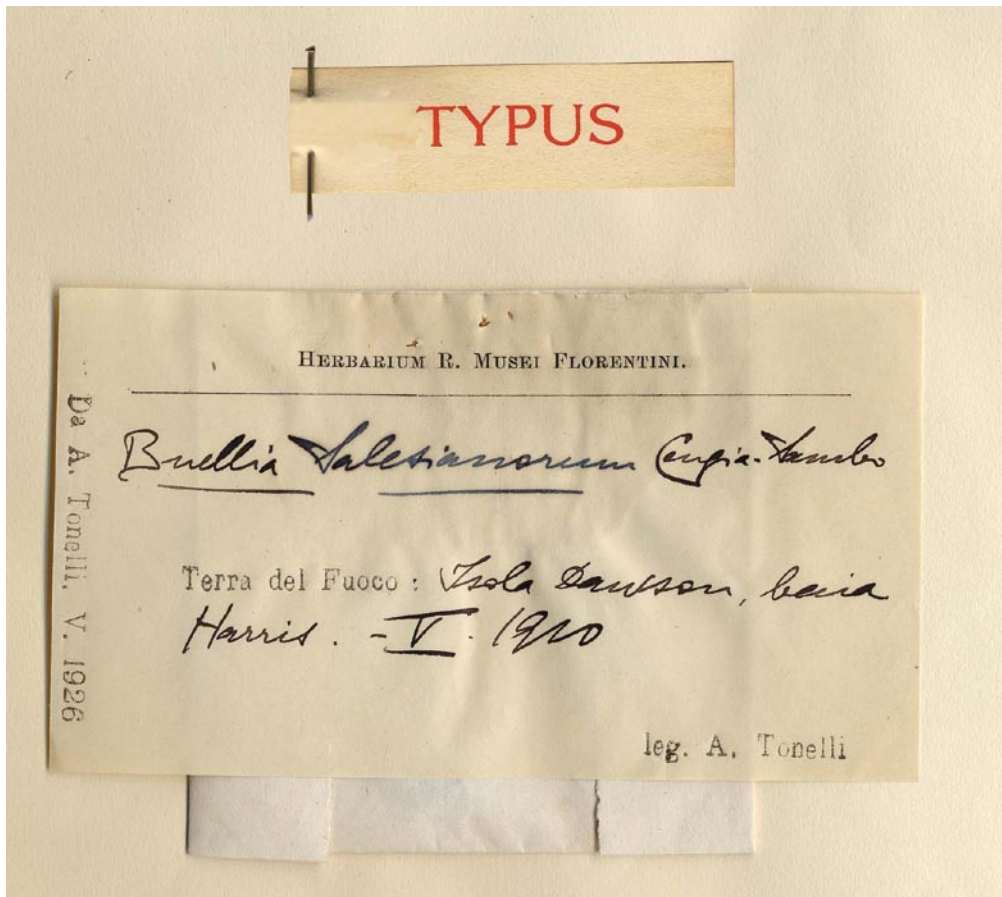 TYPUS
HERBARIUM R. MUSEI FLORENTINI.
Buellia Salesianorum Cengia-Sambo
Terra del Fuoco : Isola Dawson, baia
Harris. - V. 1920
leg. A. Tonelli
Da A. Tonelli. V. 1926